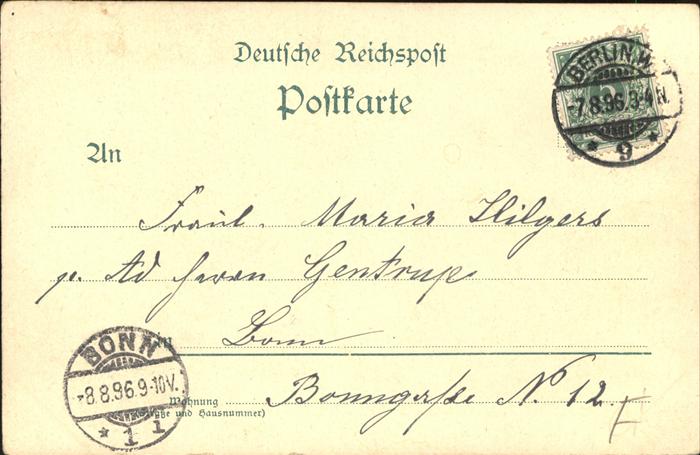 Deutsche Reichspost
Postkarte
BERLIN.W.
-7.8.96.3-4N.
* 9 *
An
Fräul. Maria Hilgers
p. Ad Herrn Gentrup
in Bonn
Wohnung Bonngaße N. 12
(Straße und Hausnummer)
BONN
-8.8.96.9-10V.
* 1 1